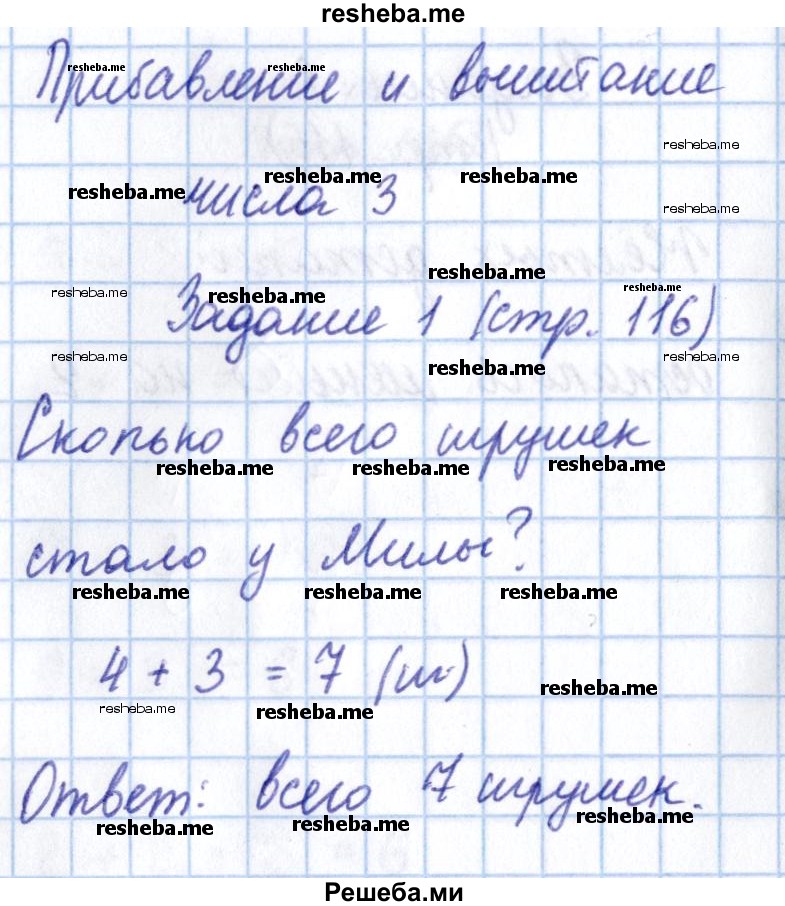 resheba.me
resheba.me resheba.me
Прибавление и вычитание
resheba.me
resheba.me resheba.me resheba.me
числа 3
resheba.me
resheba.me
resheba.me resheba.me resheba.me
Задание 1 (стр. 116)
resheba.me resheba.me resheba.me
Сколько всего игрушек
resheba.me resheba.me resheba.me
стало у Милы?
resheba.me resheba.me resheba.me
4 + 3 = 7 (и.)
resheba.me
resheba.me resheba.me
Ответ: всего 7 игрушек.
resheba.me resheba.me resheba.me
Решеба.ми